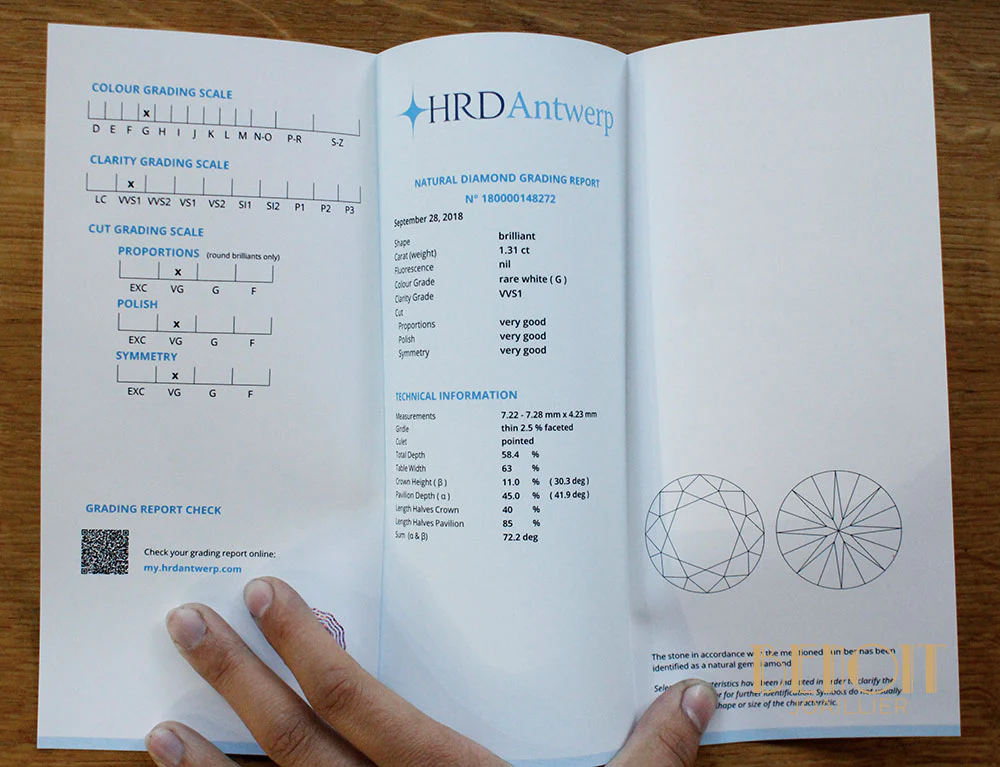 COLOUR GRADING SCALE
x
D E F G H I J K L M N-O P-R S-Z
CLARITY GRADING SCALE
x
LC VVS1 VVS2 VS1 VS2 SI1 SI2 P1 P2 P3
CUT GRADING SCALE
PROPORTIONS (round brilliants only)
x
EXC VG G F
POLISH
x
EXC VG G F
SYMMETRY
x
EXC VG G F
GRADING REPORT CHECK
Check your grading report online:
my.hrdantwerp.com
HRD Antwerp
NATURAL DIAMOND GRADING REPORT
N° 180000148272
September 28, 2018
Shape brilliant
Carat (weight) 1.31 ct
Fluorescence nil
Colour Grade rare white ( G )
Clarity Grade VVS1
Cut
Proportions very good
Polish very good
Symmetry very good
TECHNICAL INFORMATION
Measurements 7.22 - 7.28 mm x 4.23 mm
Girdle thin 2.5 % faceted
Culet pointed
Total Depth 58.4 %
Table Width 63 %
Crown Height ( β ) 11.0 % ( 30.3 deg )
Pavilion Depth ( α ) 45.0 % ( 41.9 deg )
Length Halves Crown 40 %
Length Halves Pavilion 85 %
Sum (α & β) 72.2 deg
The stone in accordance with the mentioned number has been
identified as a natural gem diamond.
have been indicated in order to clarify the
for further identification. Symbols do not usually
shape or size of the characteristic.